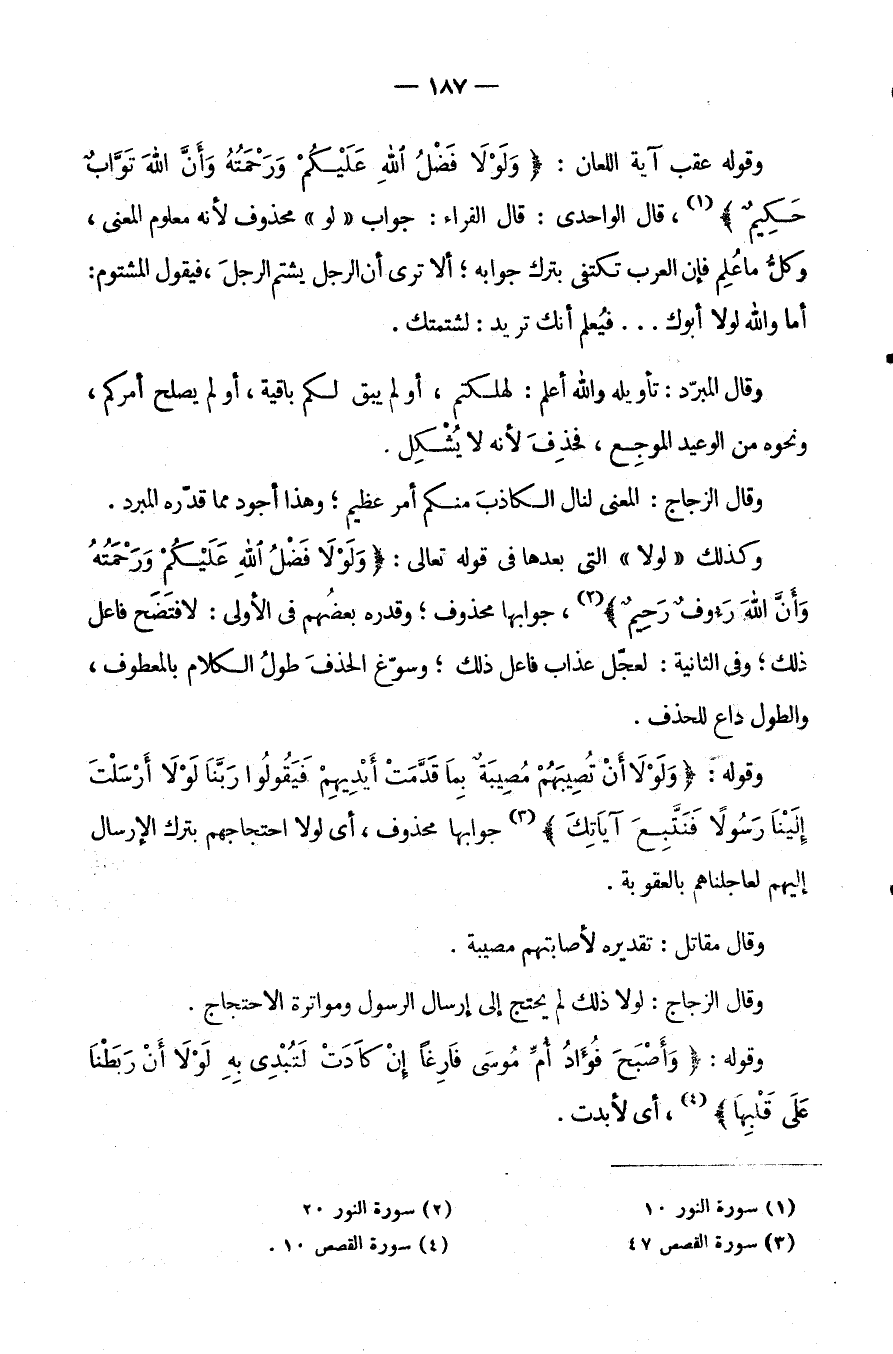 — ١٨٧ —
وقوله عقب آية اللعان : ﴿ وَلَوْلَا فَضْلُ ٱللهِ عَلَيْكُمْ وَرَحْمَتُهُ وَأَنَّ اللهَ تَوَّابٌ
حَكِيمٌ ﴾ (١) ، قال الواحدى : قال الفراء : جواب « لو » محذوف لأنه معلوم المعنى ،
وكلُّ ماعُلِم فإن العرب تكتفى بترك جوابه ؛ ألا ترى أن الرجل يشتم الرجلَ ،فيقول المشتوم:
أما والله لولا أبوك ... فيُعلم أنك تريد : لشتمتك .
وقال المبرّد : تأويله والله أعلم : لهلكتم ، أو لم يبق لكم باقية ، أو لم يصلح أمركم ،
ونحوه من الوعيد الموجِع ، فحُذِفَ لأنه لا يُشْكِل .
وقال الزجاج : المعنى لنال الكاذبَ منكم أمر عظيم ؛ وهذا أجود مما قدّره المبرد .
وكذلك « لولا » التى بعدها فى قوله تعالى : ﴿ وَلَوْلَا فَضْلُ ٱللهِ عَلَيْكُمْ وَرَحْمَتُهُ
وَأَنَّ اللهَ رَءوفٌ رَحِيمٌ ﴾(٢) ، جوابها محذوف ؛ وقدره بعضُهم فى الأولى : لافتَضَح فاعل
ذلك ؛ وفى الثانية : لعجّل عذاب فاعل ذلك ؛ وسوّغ الحذفَ طولُ الكلام بالمعطوف ،
والطول داع للحذف .
وقوله : ﴿ وَلَوْلَا أَنْ تُصِيبَهُمْ مُصِيبَةٌ بِمَا قَدَّمَتْ أَيْدِيهِمْ فَيَقُولُوا رَبَّنَا لَوْلَا أَرْسَلْتَ
إِلَيْنَا رَسُولًا فَنَتَّبِعَ آيَاتِكَ ﴾ (٣) جوابها محذوف ، أى لولا احتجاجهم بترك الإرسال
إليهم لعاجلناهم بالعقوبة .
وقال مقاتل : تقديره لأصابتهم مصيبة .
وقال الزجاج : لولا ذلك لم يحتج إلى إرسال الرسول ومواترة الاحتجاج .
وقوله : ﴿ وَأَصْبَحَ فُؤَادُ أُمِّ مُوسَى فَارِغًا إِنْ كَادَتْ لَتُبْدِى بِهِ لَوْلَا أَنْ رَبَطْنَا
عَلَى قَلْبِهَا ﴾ (٤) ، أى لأبدت .
(١) سورة النور ١٠ (٢) سورة النور ٢٠
(٣) سورة القصص ٤٧ (٤) سورة القصص ١٠ .